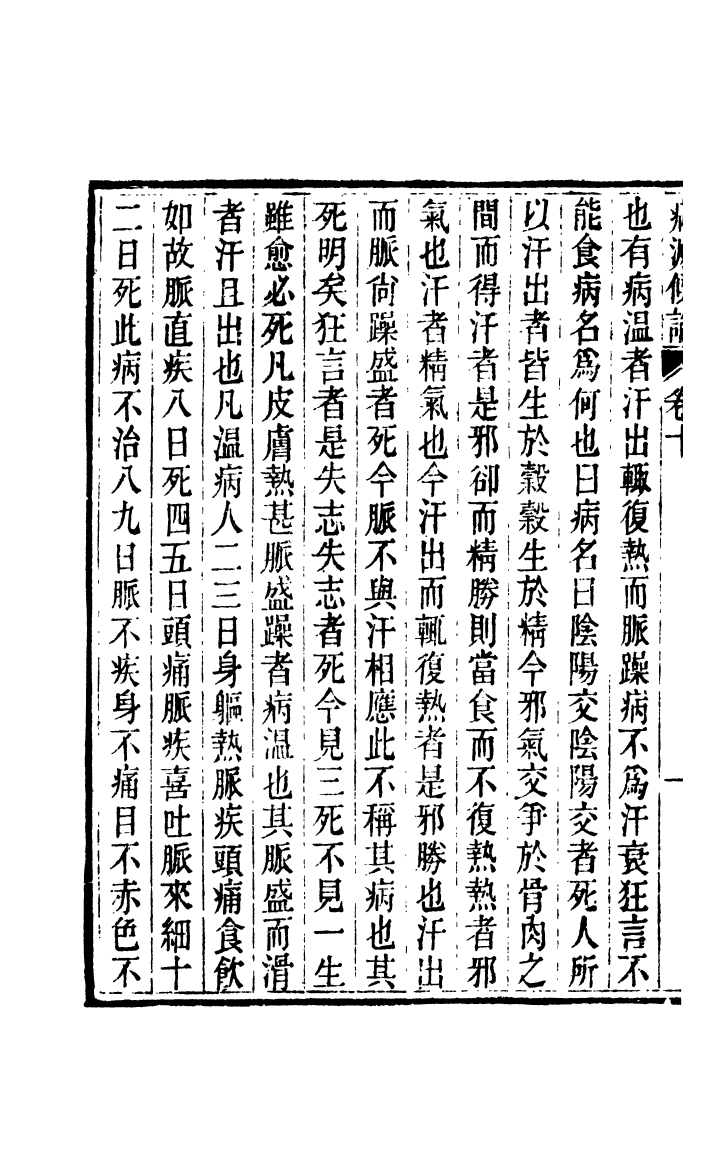 病源候論 卷十 一
也有病溫者汗出輙復熱而脈躁病不爲汗衰狂言不
能食病名爲何也曰病名曰陰陽交陰陽交者死人所
以汗出者皆生於穀穀生於精今邪氣交爭於骨肉之
間而得汗者是邪卻而精勝則當食而不復熱熱者邪
氣也汗者精氣也今汗出而輙復熱者是邪勝也汗出
而脈尙躁盛者死今脈不與汗相應此不稱其病也其
死明矣狂言者是失志失志者死今見三死不見一生
雖愈必死凡皮膚熱甚脈盛躁者病溫也其脈盛而滑
者汗且出也凡溫病人二三日身軀熱脈疾頭痛食飲
如故脈直疾八日死四五日頭痛脈疾喜吐脈來細十
二日死此病不治八九日脈不疾身不痛目不赤色不